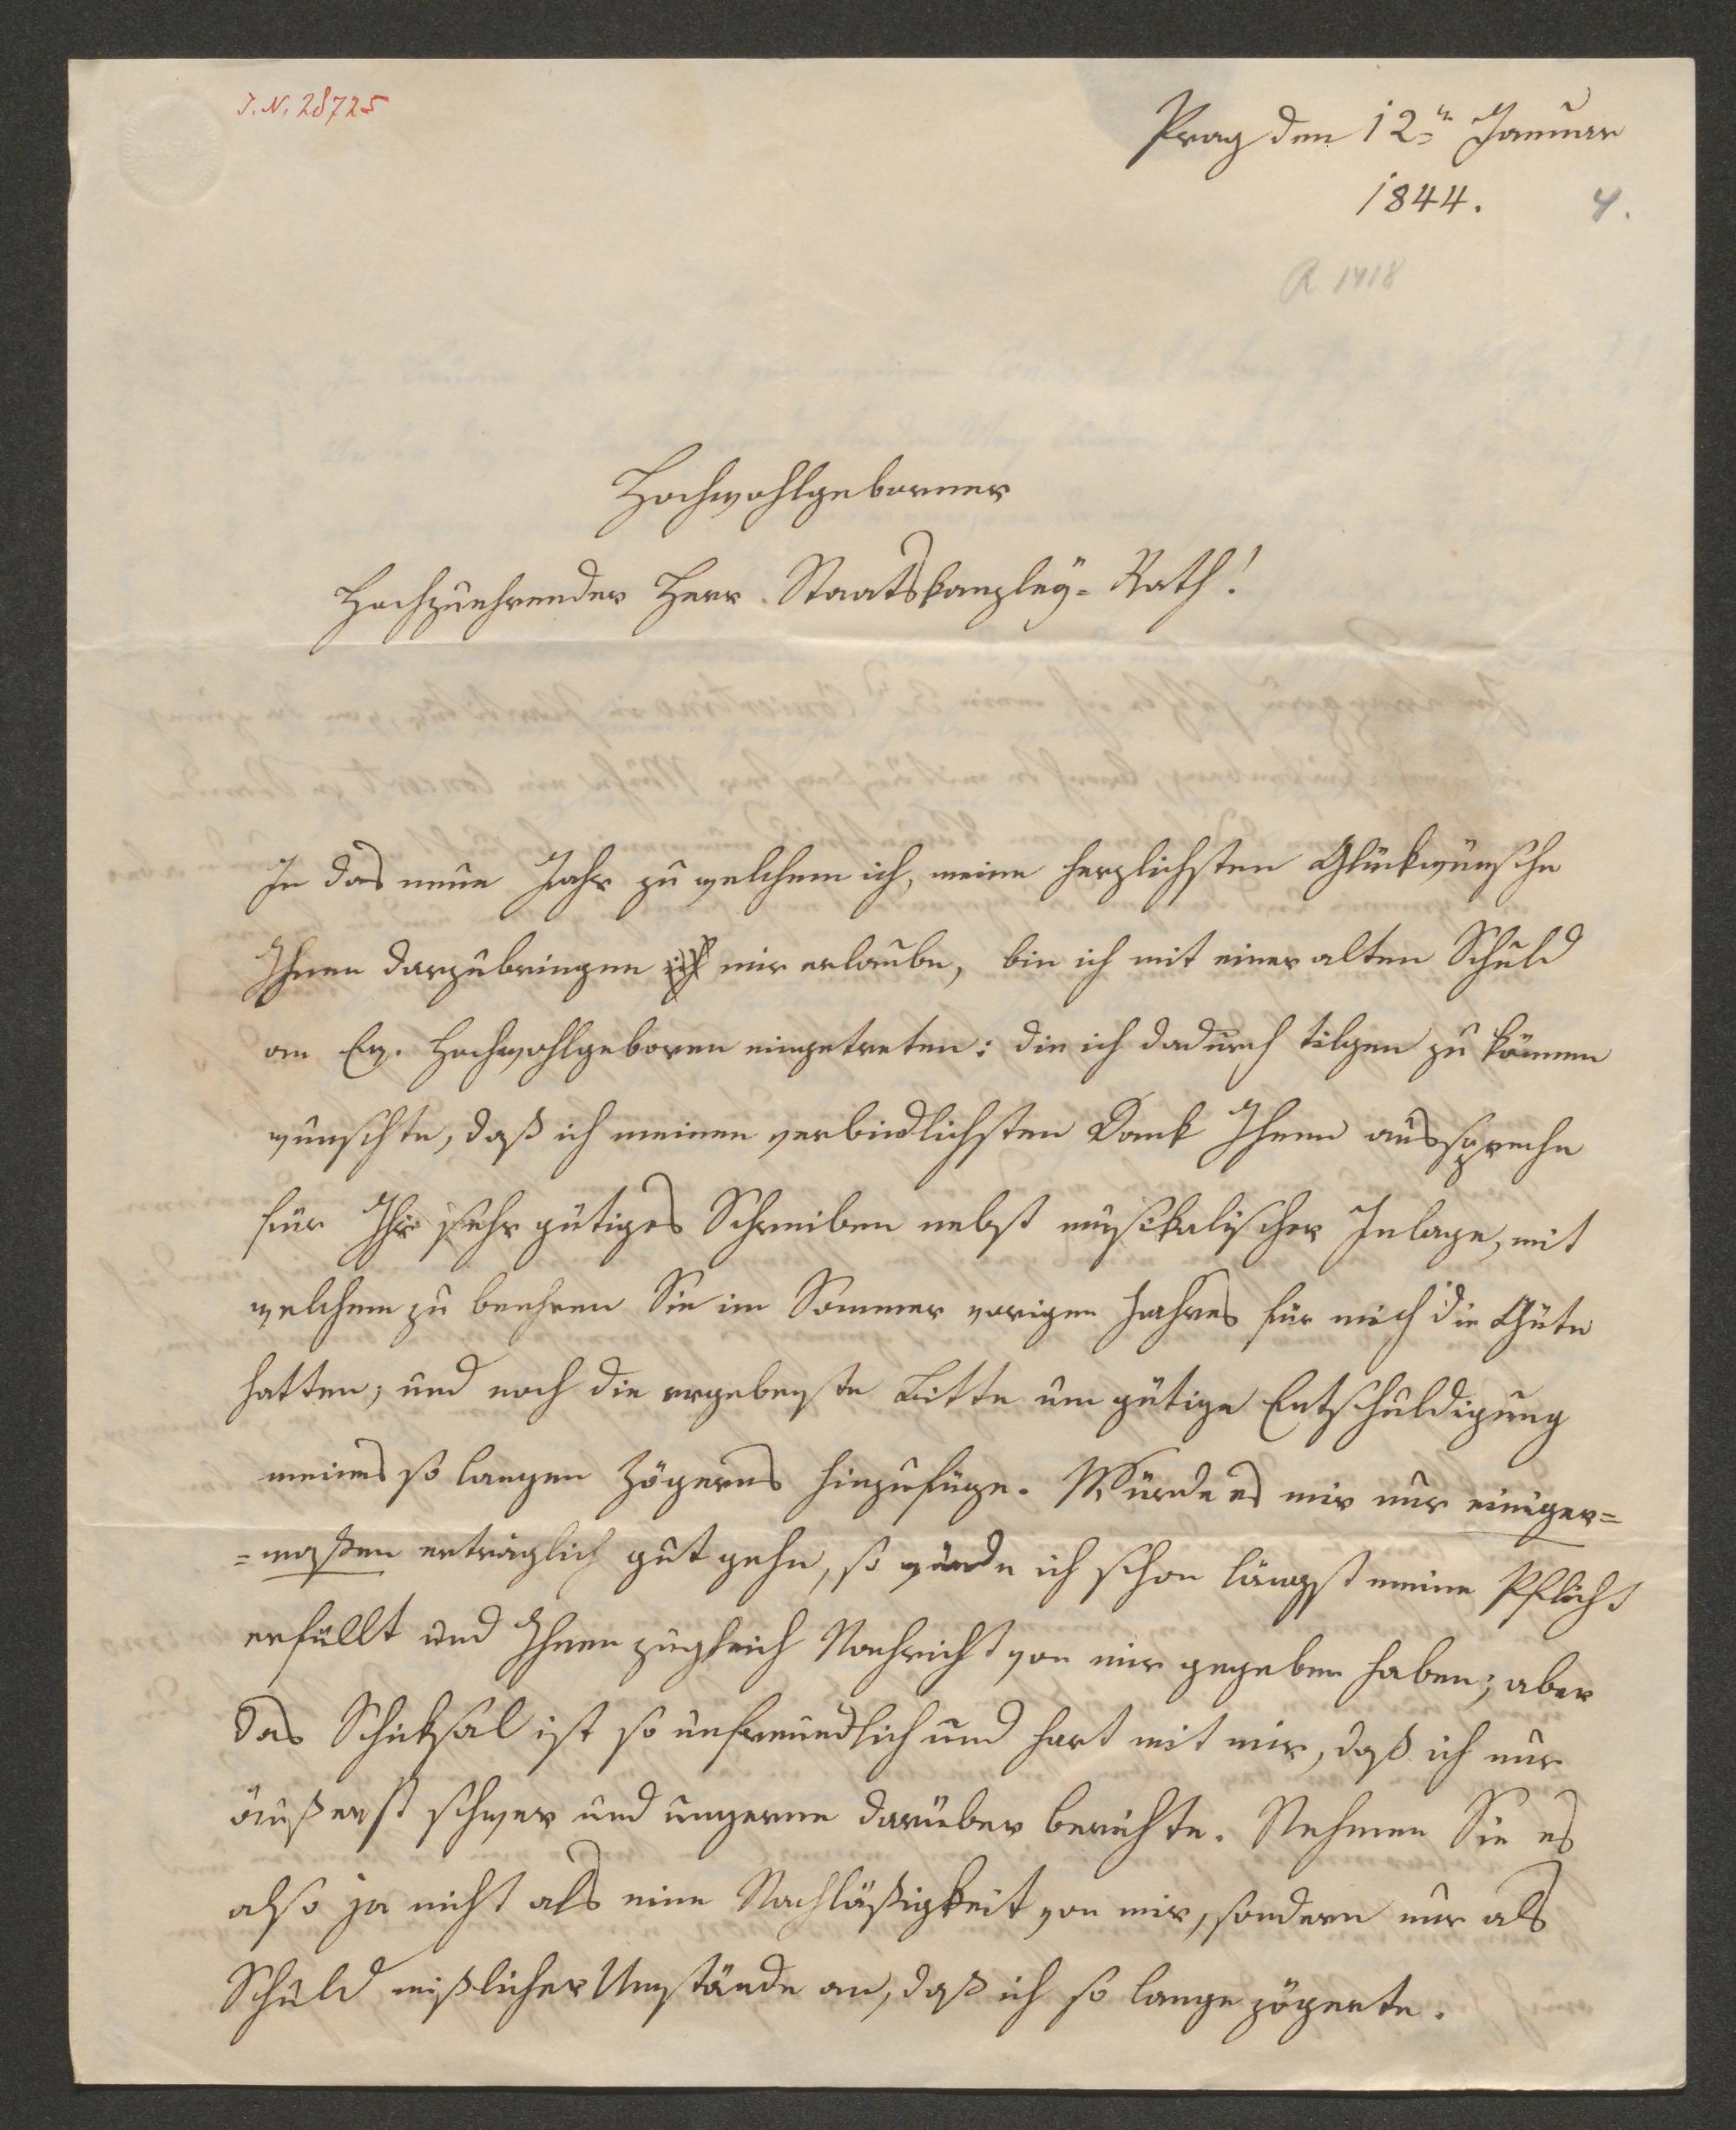 J. N. 28725
Prag den 12ten Januar
1844.
4.
R 1418
Hochwohlgeborner
Hochzuehrender Herr Staatskanzley=Rath!
In das neue Jahr zu welchem ich, meine herzlichsten Glükwünsche
Ihnen darzubringen ich mir erlaube, bin ich mit einer alten Schuld
an Ew. Hochwohlgeboren eingetreten: die ich dadurch tilgen zu können
wünschte, daß ich meinen verbindlichsten Dank Ihnen ausspreche
für Ihr sehr gütiges Schreiben nebst musikalischer Inlage, mit
welchem zu beehren Sie im Sommer vorigen Jahres für mich die Güte
hatten; und noch die ergebenste Bitte um gütige Entschuldigung
meines so langen Zögerns hinzufüge. Würde es mir nur einiger=
=maßen erträglich gut gehn, so würde ich schon längst meine Pflicht
erfüllt und Ihnen zugleich Nachricht von mir gegeben haben; aber
das Schiksal ist so unfreundlich und hart mit mir, daß ich nur
äußerst schwer und ungerne darüber berichte. Nehmen Sie es
also ja nicht als eine Nachläßigkeit von mir, sondern nur als
Schuld mißlicher Umstände an, daß ich so lange zögerte.